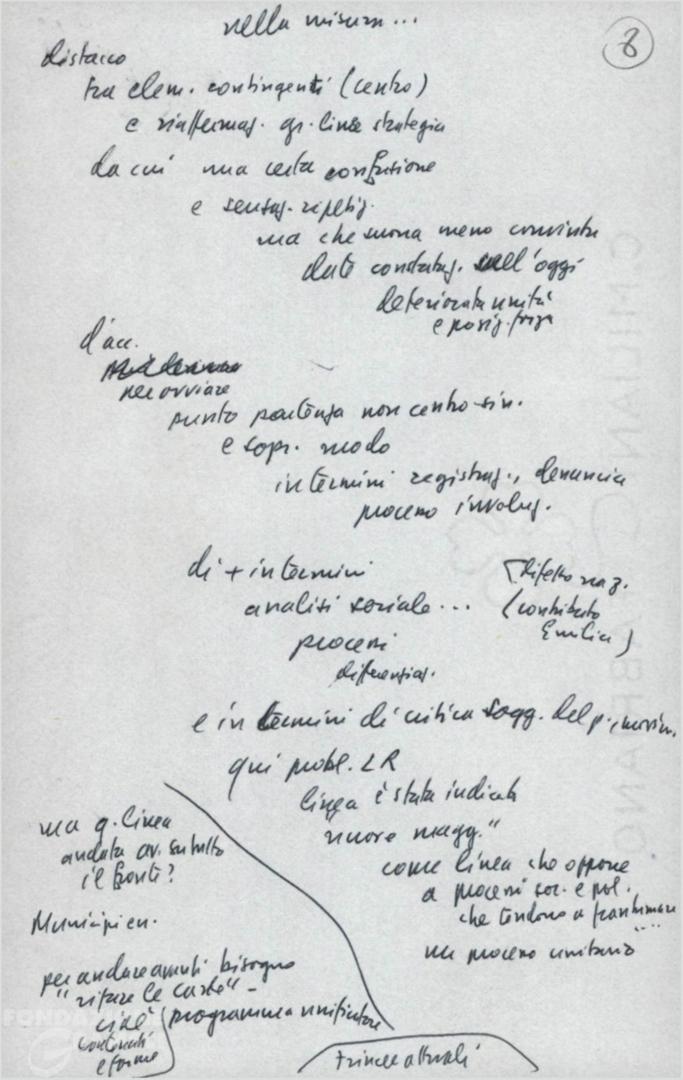 nella misura...
8
distacco
tra elem. contingenti (centro)
e riaffermaz. gr. linee strategia
da cui una certa confusione
e sensaz. ripetiz.
ma che suona meno convinta
date constataz. sull'oggi
deteriorata unità
e posiz. forza
d'acc.
per ovviare
punto partenza non centro-sin.
e sopr. modo
in termini registraz., denuncia
processo involuz.
di + in termini
analisi sociale...
processi
differenziaz.
[difetto naz.
(contributo
Emilia)
e in termini di critica sogg. del p., movim.
qui probl. LR
linea è stata indicata
"nuove magg."
come linea che oppone
a processi soc. e pol.
che tendono a frantumare
...
un processo unitario
ma q. linea
andata av. su tutto
il fronte?
Municipi en.
per andare avanti bisogna
"rifare le carte" -
cioè programma unificatore
contenuti
e forme
trincee attuali
FONDAZIONE